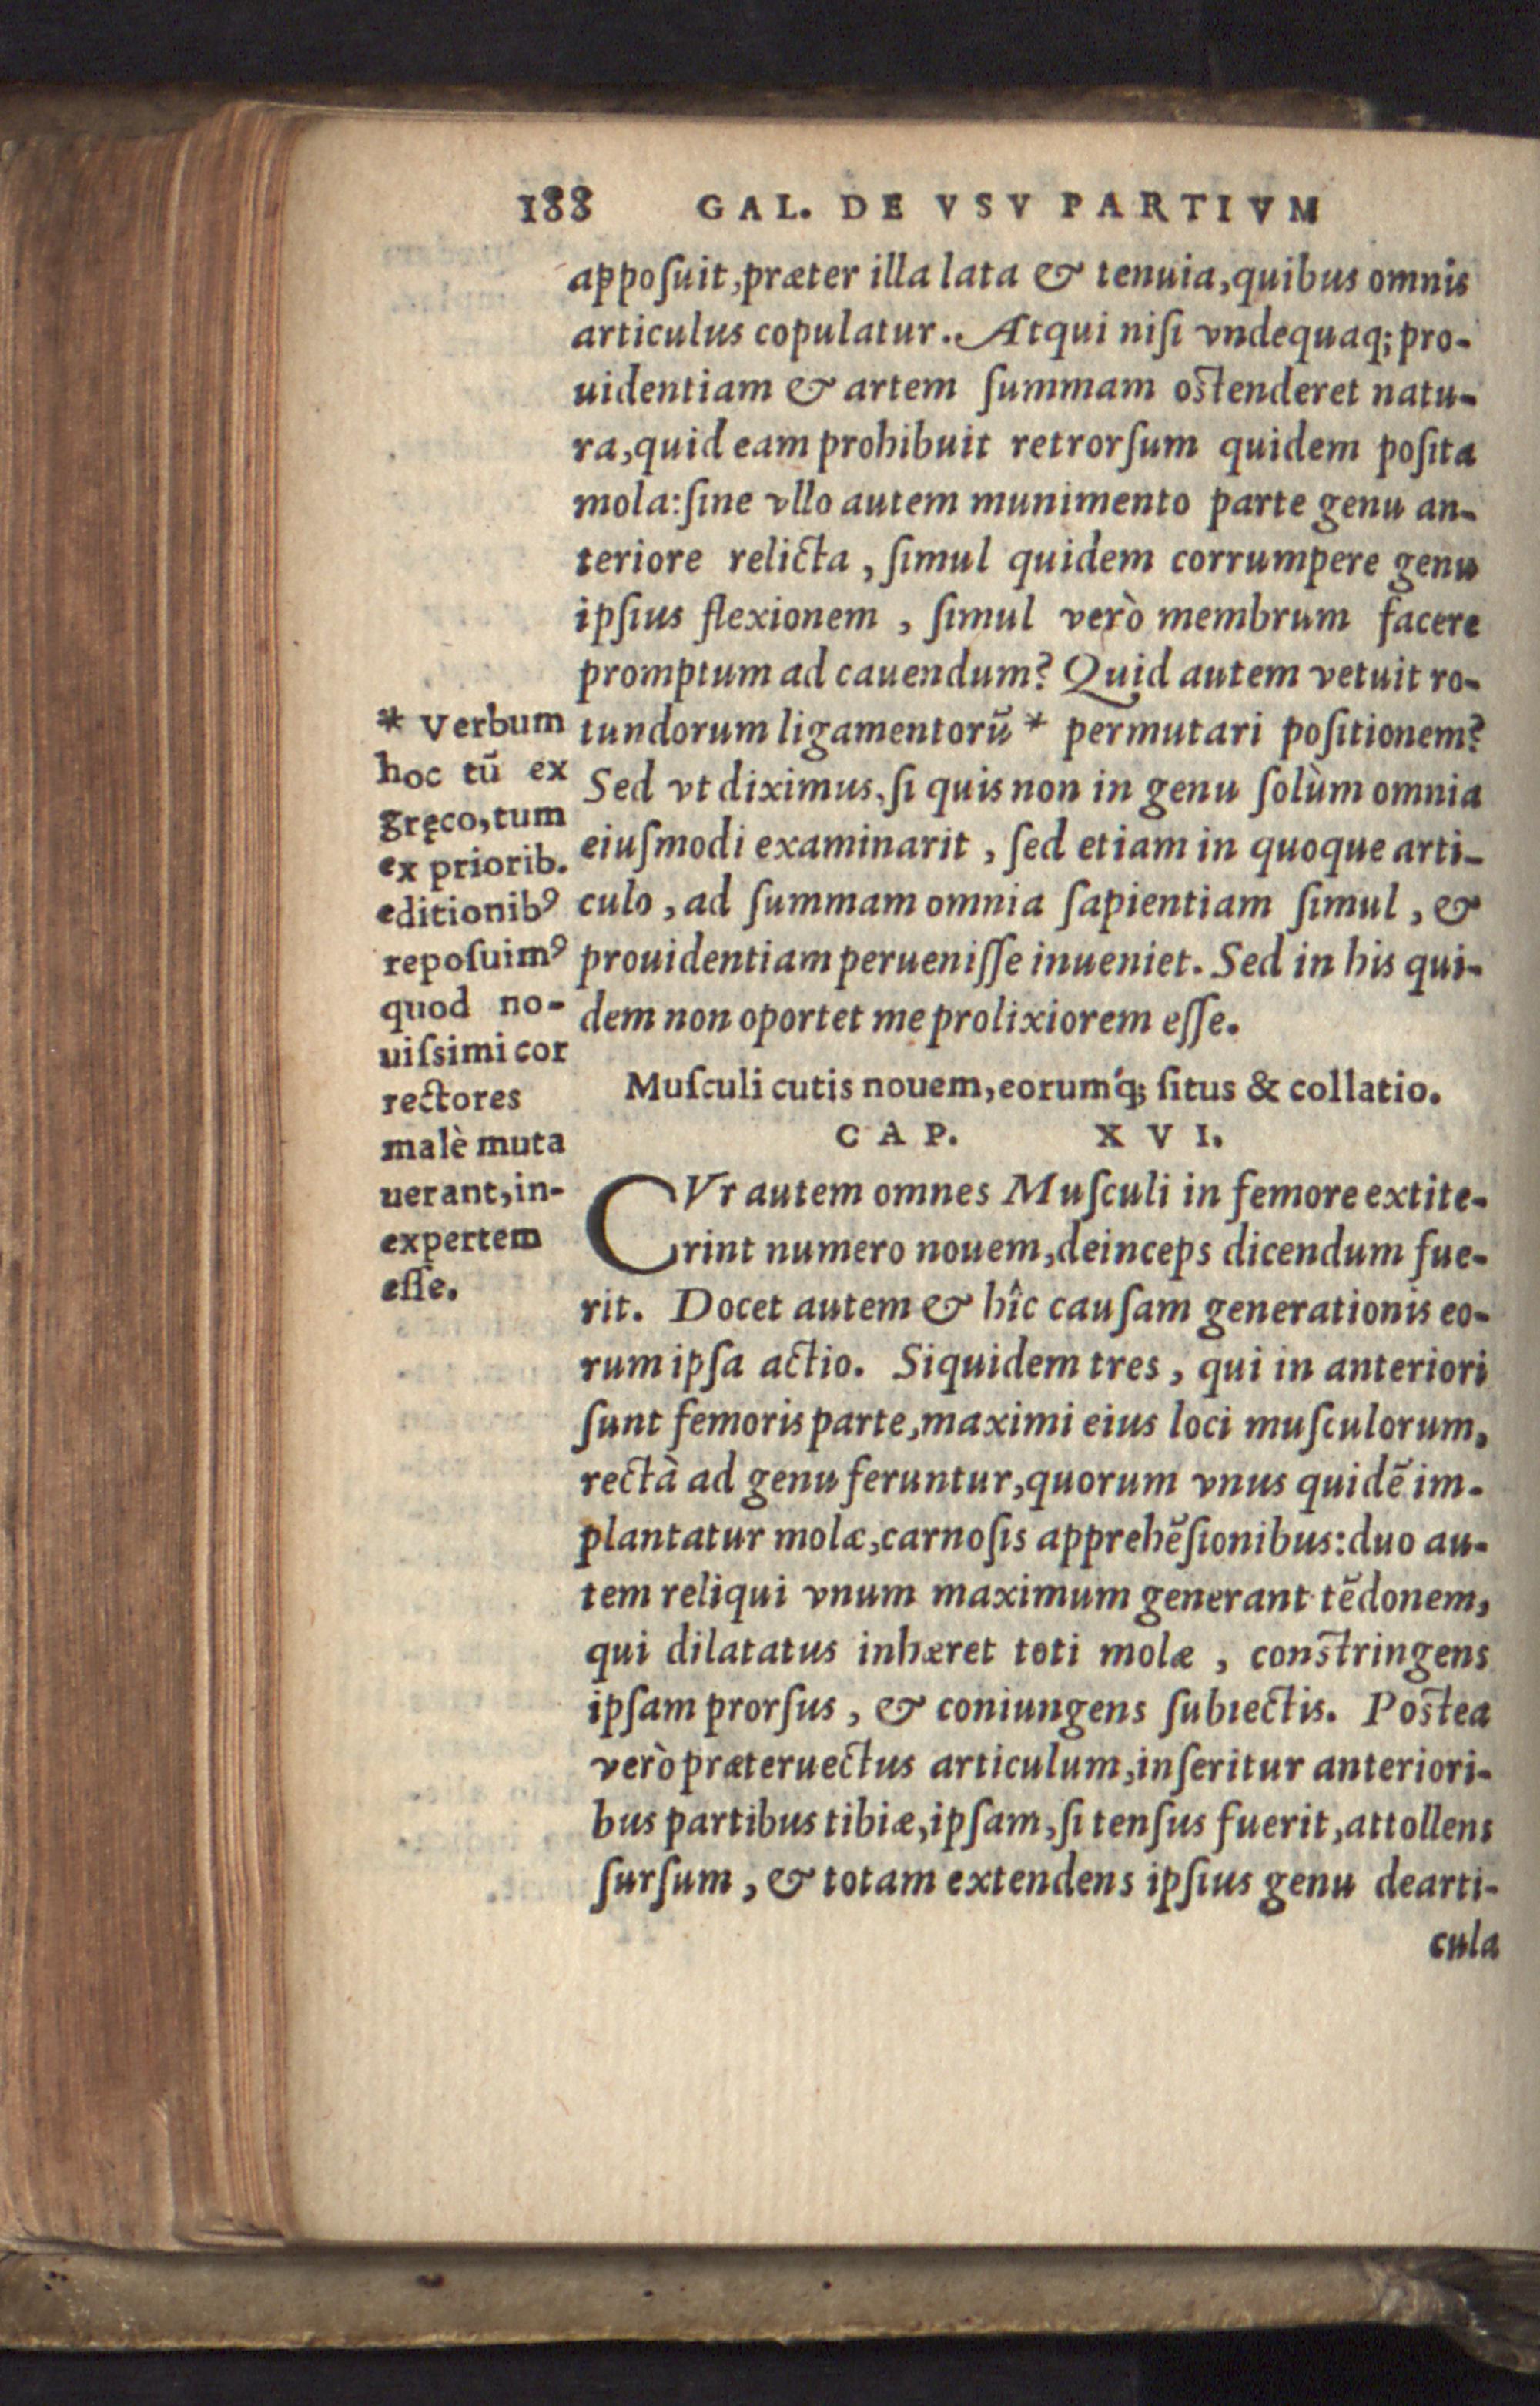 188 GAL. DE VSV PARTIVM
appoſuit, præter illa lata & tenuia, quibus omnis
articulus copulatur. Atqui niſi vndequaq; pro-
uidentiam & artem ſummam oſtenderet natu-
ra, quid eam prohibuit retrorſum quidem poſita
mola: ſine vllo autem munimento parte genu an-
teriore relicta, ſimul quidem corrumpere genu
ipſius flexionem, ſimul verò membrum facere
promptum ad cauendum? Quid autem vetuit ro-
tundorum ligamentorū * permutari poſitionem?
Sed vt diximus, ſi quis non in genu ſolùm omnia
eiuſmodi examinarit, ſed etiam in quoque arti-
culo, ad ſummam omnia ſapientiam ſimul, &
prouidentiam perueniſſe inueniet. Sed in his qui-
dem non oportet me prolixiorem eſſe.
* Verbum
hoc tū ex
gręco, tum
ex priorib.
editionibꝰ
repoſuimꝰ
quod no-
uiſsimi cor
rectores
malè muta
uerant, in-
expertem
eſſe.
Muſculi cutis nouem, eorumq́; ſitus & collatio.
CAP. XVI.
CVr autem omnes Muſculi in femore extite-
rint numero nouem, deinceps dicendum fue-
rit. Docet autem & hîc cauſam generationis eo-
rum ipſa actio. Siquidem tres, qui in anteriori
ſunt femoris parte, maximi eius loci muſculorum,
rectà ad genu feruntur, quorum vnus quidē im-
plantatur molæ, carnoſis apprehēſionibus: duo au-
tem reliqui vnum maximum generant tēdonem,
qui dilatatus inhæret toti molæ, conſtringens
ipſam prorſus, & coniungens ſubiectis. Poſtea
verò præteruectus articulum, inſeritur anteriori-
bus partibus tibiæ, ipſam, ſi tenſus fuerit, attollens
ſurſum, & totam extendens ipſius genu dearti-
cula